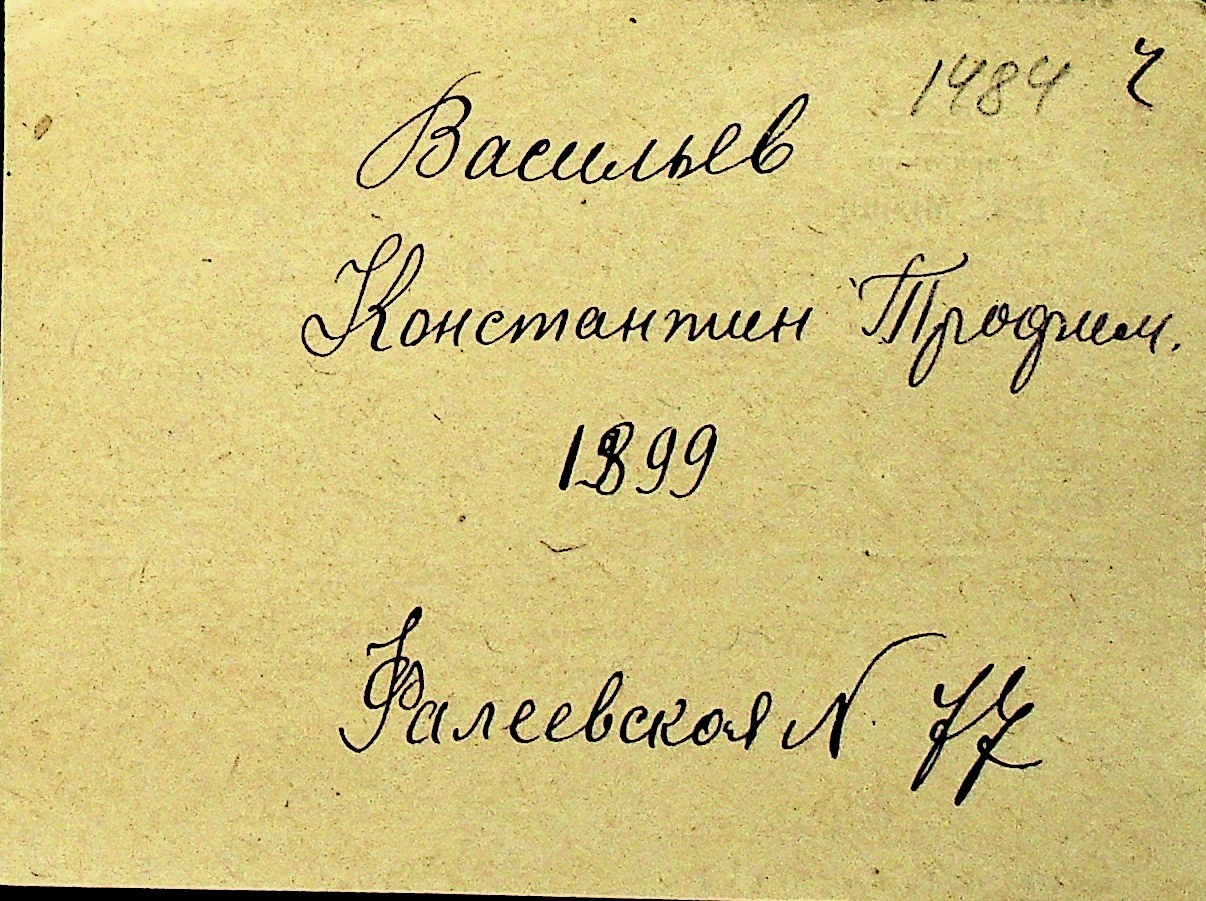 1484 ч
Васильев
Константин Трофим.
1899
Фалеевская N 77